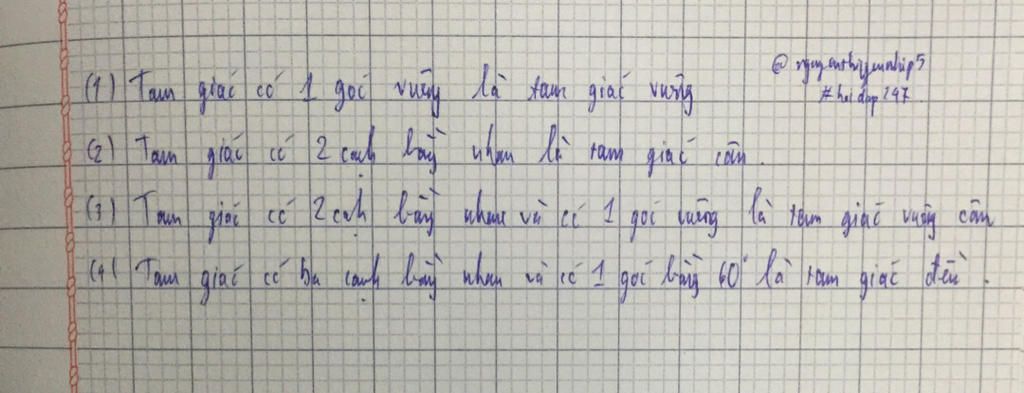 (1) Tam giác có 1 góc vuông là tam giác vuông
@nguyenthiyennhip5
#hoidap247
(2) Tam giác có 2 cạnh bằng nhau là tam giác cân.
(3) Tam giác có 2 cạnh bằng nhau và có 1 góc vuông là tam giác vuông cân
(4) Tam giác có ba cạnh bằng nhau và có 1 góc bằng 60° là tam giác đều.